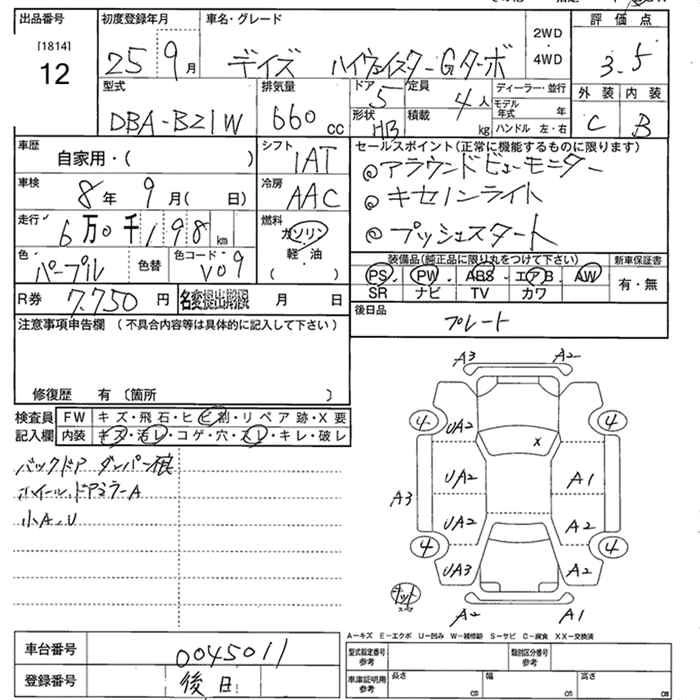 出品番号 初度登録年月 車名・グレード 2WD ・ 4WD 評価点
[1814] 12 25 9月 デイズ ハイウェイスターGターボ 3.5
型式 排気量 ドア 5 定員 4人 ディーラー・並行 外装 内装
DBA-B21W 660cc 形状 HB 積載 kg モデル年式 年 C B
ハンドル 左・右
車歴 自家用・( ) シフト IAT セールスポイント(正常に機能するものに限ります)
車検 8年 9月( 日) 冷房 AAC ◎アラウンドビューモニター
◎キセノンライト
走行 6万0千198km 燃料 ガソリン ◎プッシュスタート
軽・油
( )
色 パープル 色替 色コード V09 装備品(純正品に限り丸をつけて下さい) 新車保証書
PS PW ABS エアB AW 有・無
SR ナビ TV カワ
R券 7.750円 名変提出期限 月 日 後日品 プレート
注意事項申告欄 (不具合内容等は具体的に記入して下さい)
修復歴 有〔箇所 〕
検査員 FW キズ・飛石・ヒビ割・リペア跡・X要
記入欄 内装 キズ・汚レ・コゲ・穴・スレ・キレ・破レ
バックドア ダンパー痕
ホイール、ドアミラーA
小A、U
A3 A2
4 4
UA2 x
UA2 A1
A3
UA2 A2
4 4
UA3 A2
ナット
A2 A1
A-キズ E-エクボ U-凹み W-補修跡 S-サビ C-腐食 XX-交換済
車台番号 0045011 型式指定番号 参考 類別区分番号 参考
登録番号 後日 車庫証明用 参考 長さ cm 幅 cm 高さ cm